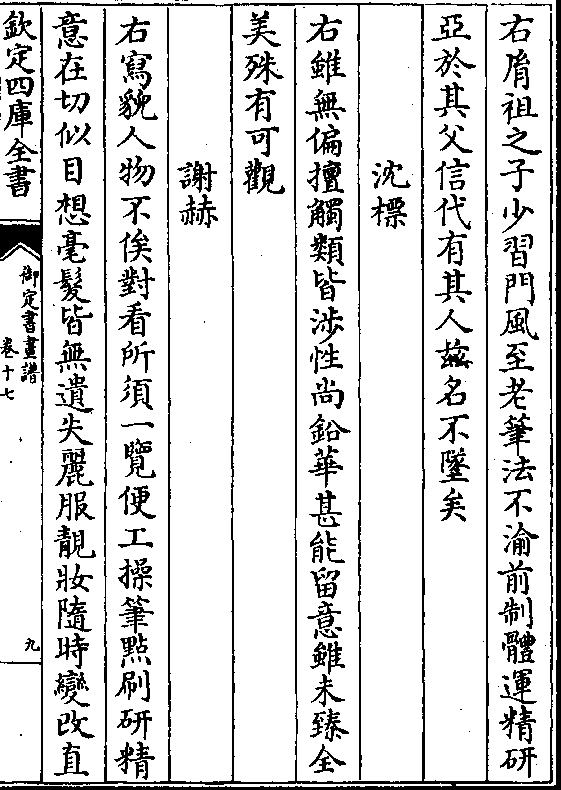 右胤祖之子少習門風至老筆法不渝前制體運精研
亞於其父信代有其人兹名不墜矣
沈標
右雖無偏擅觸類皆涉性尚鉛華甚能留意雖未臻全
美殊有可觀
謝赫
右寫貌人物不俟對看所須一覽便工操筆點刷研精
意在切似目想毫髮皆無遺失麗服靚妝隨時變改直
欽定四庫全書
御定書畫譜
卷十七
九